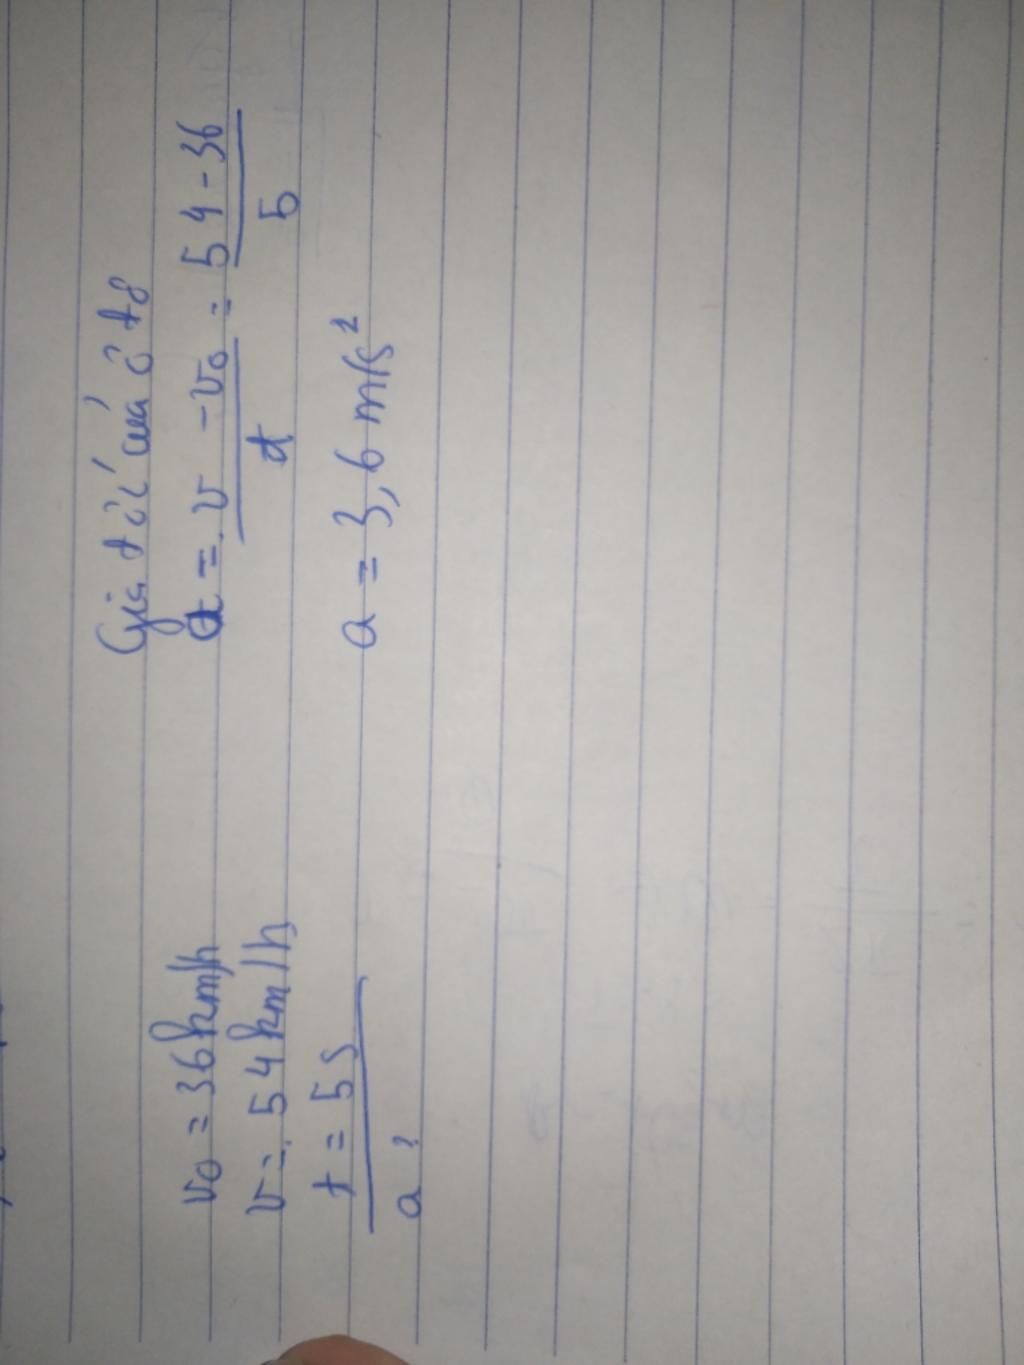 v₀ = 36km/h
v = 54km/h
t = 5s
a?
Gia tốc của ô tô
a = v - v₀ / t = 54 - 36 / 5
a = 3,6 m/s²